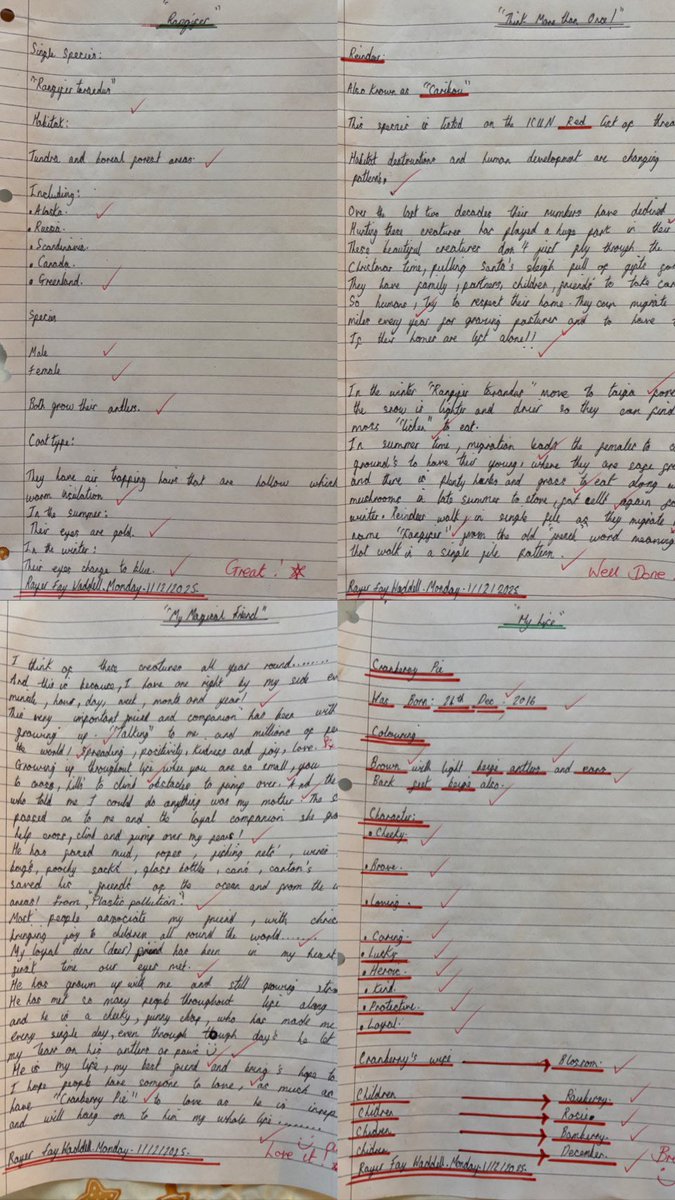 "Rangifer"
Single Species:
"Rangifer tarandus"
Habitat:
Tundra and boreal forest areas.
Including:
• Alaska.
• Russia.
• Scandinavia.
• Canada.
• Greenland.
Species
Male
Female
Both grow their antlers.
Coat type:
They have air trapping hairs that are hollow which
warm insilation
In the summer:
Their eyes are gold.
In the winter:
Their eyes change to blue.
Great!
Rayer Fay Waddell. Monday. 1/12/2025.
"Think More than Once!"
Reindeer
Also Known as "Caribou"
This species is listed on the ICUN Red list of
Habitat destructions and human development are changing
patterns.
Over the last two decades their numbers have declined
Hunting these creatures has played a huge part in their
These beautiful creatures don't just fly through the
Christmas time, pulling Santa's sleigh full of gifts
They have family, partners, children, friends to take
So humans, try to respect their home. They can migrate
miles every year for grazing pastures and to have
If their homes are left alone!!
In the winter "Rangifer tarandus" move to taiga
the snow is lighter and drier so they can find
moss "lichen" to eat.
In summer time, migration leads the females to
ground's to have their young, where they are safe
and there is plenty herbs and grass to eat along
mushrooms in late summer to store, fat cells again
winter. Reindeer walk, in single file as they migrate
name "Rangifer", from the old word meaning
that walk in a single file pattern.
Well Done
"My Magical Friend"
I think of these creatures all year round........
And this is because, I have one right by my side
minute, hour, day, week, month and year!
This very important friend and companion has been with
growing up. "Talking" to me and millions of
the world! Spreading, positivity, kidness and joy, love.
Growing up throughout life when you are so small, you
to cross, hills to climb obstacles to jump over. And
who told me I could do anything was my mother. The
passed on to me and the loyal companion she
help cross, climb and jump over my fears!
He has faced mud, ropes, fishing nets'
bags, poochy sacks, glass bottle, cans, carton's
saved his friends of the ocean and from the
areas! From, "Plastic pollution".
Most people associate my friend, with
bringing joy to children all round the world.......
My loyal dear (deer) friend has been in my heart
first time our eyes met.
He has grown up with me and still growing
He has met so many people throughout life along
and he is a cheeky, funny chap, who has made me
every single day, even through tough day's he let
my tears on his antlers or paws
He is my life, my best friend and bring's hope to
I hope people have someone to love, as much as
have "Cranberry Pie" to love as he is
and will hang on to him my whole life........
Love it!
Rayer Fay Waddell. Monday. 1/12/2025.
"My Life"
Cranberry Pie
Was Born: 26th Dec 2016
Colouring
Brown with light beige antlers and ears
Back feet beige also.
Character:
• Cheeky.
• Brave.
• Loving.
• Caring.
• Lucky.
• Heroic.
• Kind.
• Protective.
• Loyal.
Cranberry's wife Blossom.
Children
Children Rosie.
Children Bamberry.
Children December.
Rayer Fay Waddell. Monday. 1/12/2025.